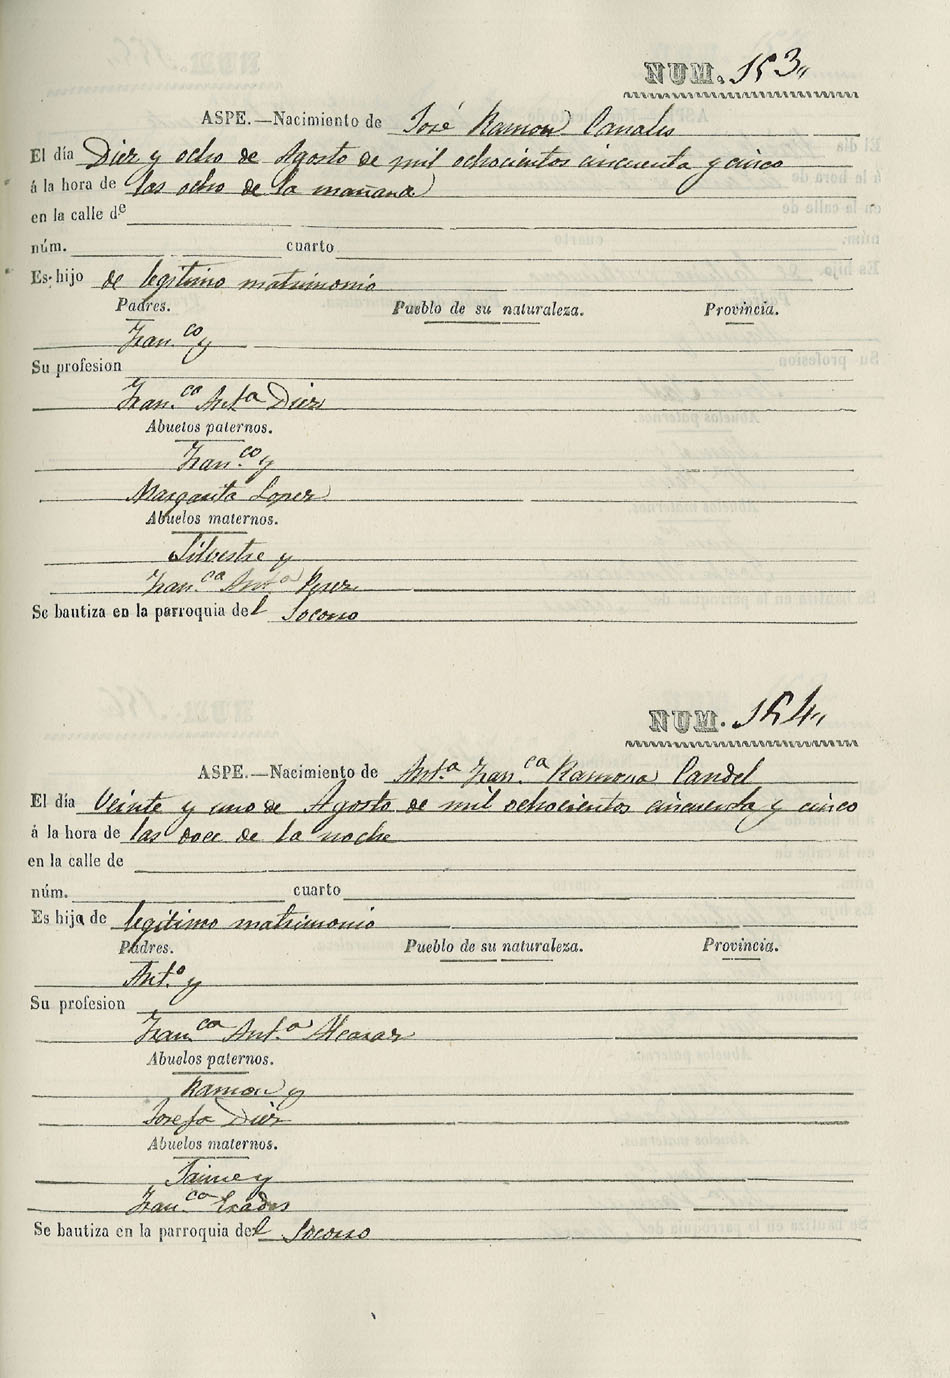 NUM. 153„
ASPE.—Nacimiento de José Ramon Canalis
El día Diez y ocho de Agosto de mil ochocientos cincuenta y cinco
á la hora de las ocho de la mañana
en la calle de
núm. cuarto
Es hijo de legitimo matrimonio
Padres. Pueblo de su naturaleza. Provincia.
Fran.co y
Su profesion
Fran.ca Ant.a Diez
Abuelos paternos.
Fran.co y
Margarita Lopez
Abuelos maternos.
Silbestre y
Fran.ca Ant.a Perez
Se bautiza en la parroquia del Socorro
NUM. 154„
ASPE.—Nacimiento de Ant.a Fran.ca Ramona Candel
El día Veinte y uno de Agosto de mil ochocientos cincuenta y cinco
á la hora de las doce de la noche
en la calle de
núm. cuarto
Es hija de legitimo matrimonio
Padres. Pueblo de su naturaleza. Provincia.
Ant.o y
Su profesion
Fran.ca Ant.a Alcaraz
Abuelos paternos.
Ramon y
Josefa Diez
Abuelos maternos.
Jaime y
Fran.ca
Se bautiza en la parroquia del Socorro